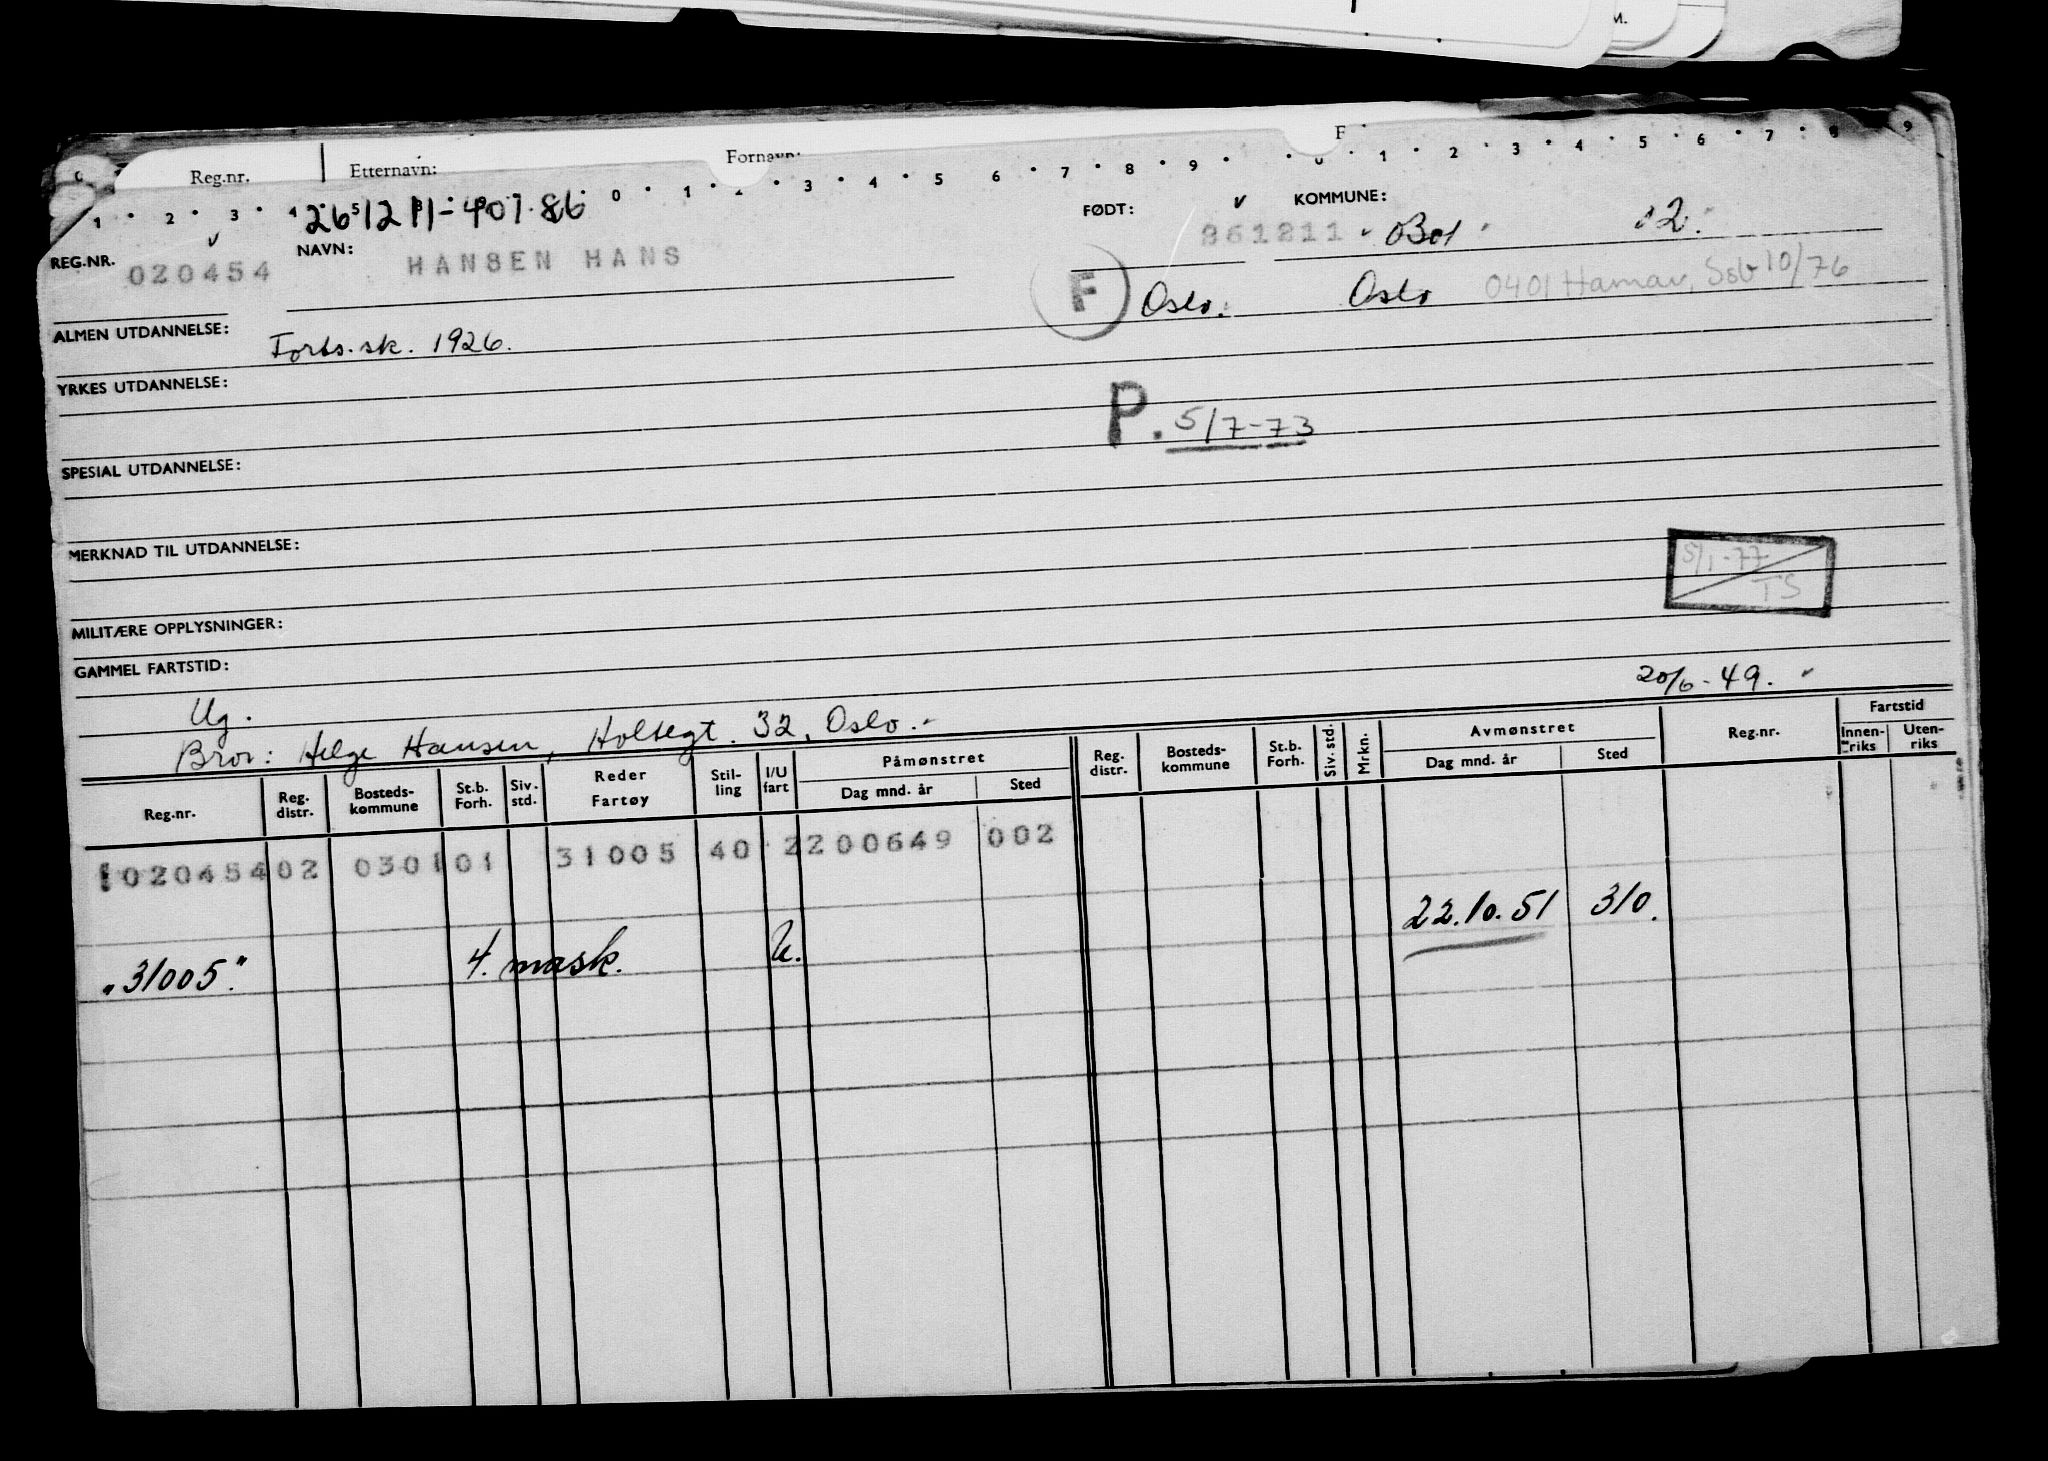 M.
Reg.nr. Etternavn: Fornavn: F
1 2 3 4 5 8 0 1 2 3 4 5 6 7 8 9 0 1 2 3 4 5 6 7 8 9
261211-40786
REG.NR. 020454 NAVN: HANSEN HANS FØDT: 261211 KOMMUNE: 301 02.
F Oslo. Oslo 0401 Hamar, Ssb 10/76
ALMEN UTDANNELSE: Forts.sk. 1926.
YRKES UTDANNELSE:
P. 5/7-73
SPESIAL UTDANNELSE:
MERKNAD TIL UTDANNELSE:
5/1-77 TS
MILITÆRE OPPLYSNINGER:
GAMMEL FARTSTID:
Ug. 20/6-49.
Bror: Helge Hansen, Holtegt. 32, Oslo.-
Reg.nr. Reg. distr. Bosteds-kommune St.b. Forh. Siv. std. Reder Fartøy Stil-ling I/U fart Påmønstret Dag mnd. år Sted Reg. distr. Bosteds-kommune St.b. Forh. Siv. std. Mrkn. Avmønstret Dag mnd. år Sted Reg.nr. Fartstid Innen-riks Uten-riks
020454 02 0301 01 31005 40 2 200649 002
22.10.51 310.
"31005" 4. mask. U.